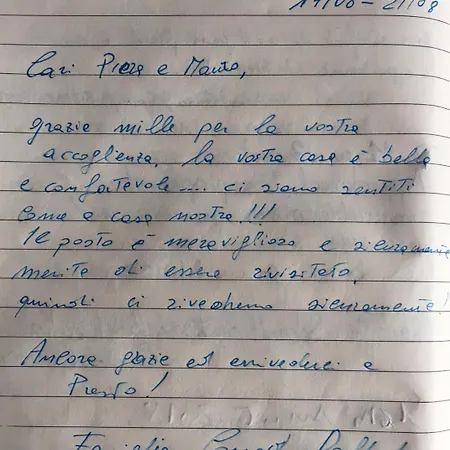 Cari Piera e Mauro,
grazie mille per la vostra
accoglienza. La vostra casa è bella
e confortevole.... ci siamo sentiti
come a casa nostra!!!
Il posto è meraviglioso e sicuramente
merita di essere rivisitato,
quindi ci rivedremo sicuramente!
Ancora grazie ed arrivederci a
Presto!
Famiglia